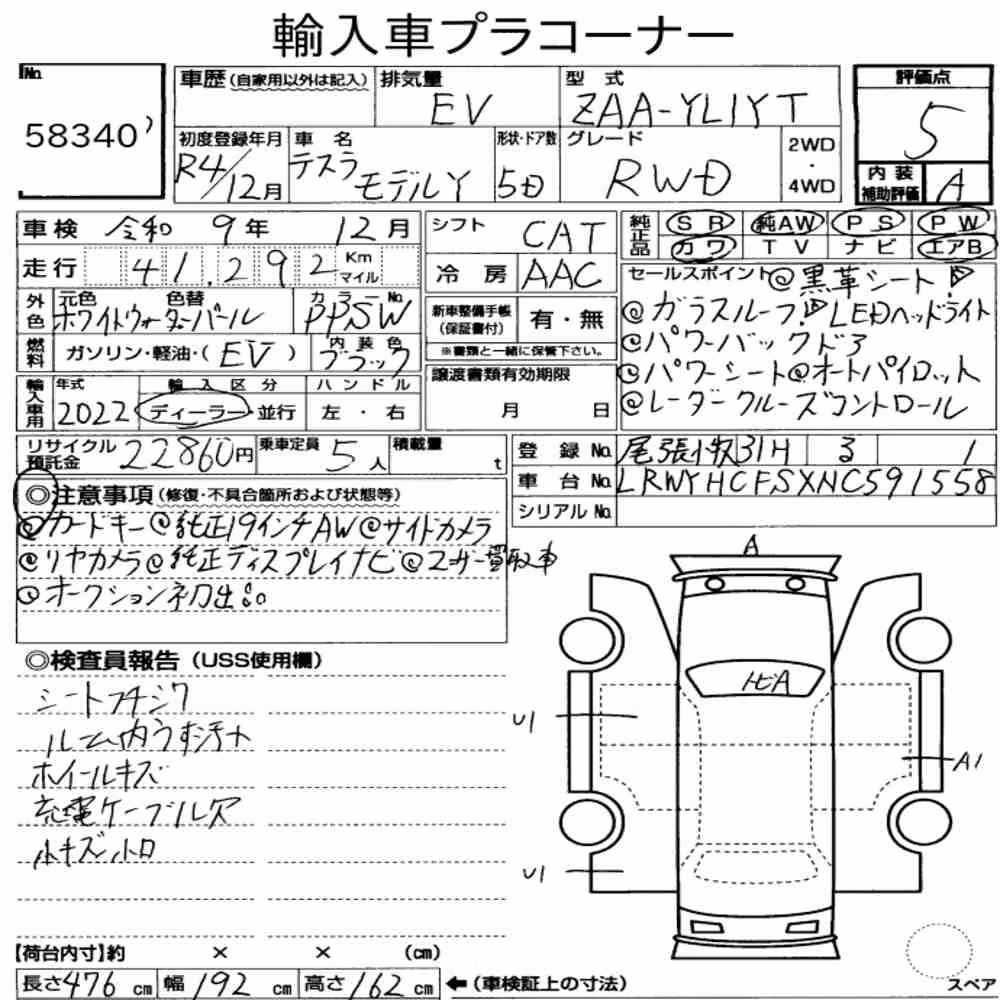 輸入車プラコーナー
No.
58340
車歴(自家用以外は記入)
排気量
EV
型式
ZAA-YL1YT
評価点
5
初度登録年月
R4/12月
車名
テスラ モデルY
形状・ドア数
5D
グレード
RWD
2WD
・
4WD
内装
補助評価
A
車検 令和 9年 12月
シフト
CAT
純正品
SR 純AW PS PW
カワ TV ナビ エアB
走行 41,292 Km マイル
冷房
AAC
外色
元色 色替
ホワイトウォーターパール
カラーNo.
PPSW
新車整備手帳
(保証書付)
有・無
※書類と一緒に保管下さい。
燃料
ガソリン・軽油・(EV)
内装色
ブラック
セールスポイント @黒革シート
@ガラスルーフ LEDヘッドライト
@パワーバックドア
@パワーシート@オートパイロット
@レーダークルーズコントロール
輸入車用
年式
2022
輸入区分
ディーラー・並行
ハンドル
左・右
譲渡書類有効期限
月 日
リサイクル
預託金
22860円
乗車定員 5人
積載量 t
登録No. 尾張小牧314 る 1
車台No. LRWYHCFSXNC591558
シリアルNo.
◎注意事項(修復・不具合箇所および状態等)
@カードキー@純正19インチAW@サイドカメラ
@リヤカメラ@純正ディスプレイナビ@ユーザー買取車
@オークション初出品。
◎検査員報告(USS使用欄)
シートフチシワ
ルーム内うす汚れ
ホイールキズ
充電ケーブル欠
小キズ小凹
A
トビA
U1
A1
U1
【荷台内寸】約 × × (cm)
長さ476cm 幅192cm 高さ162cm ←(車検証上の寸法)
スペア